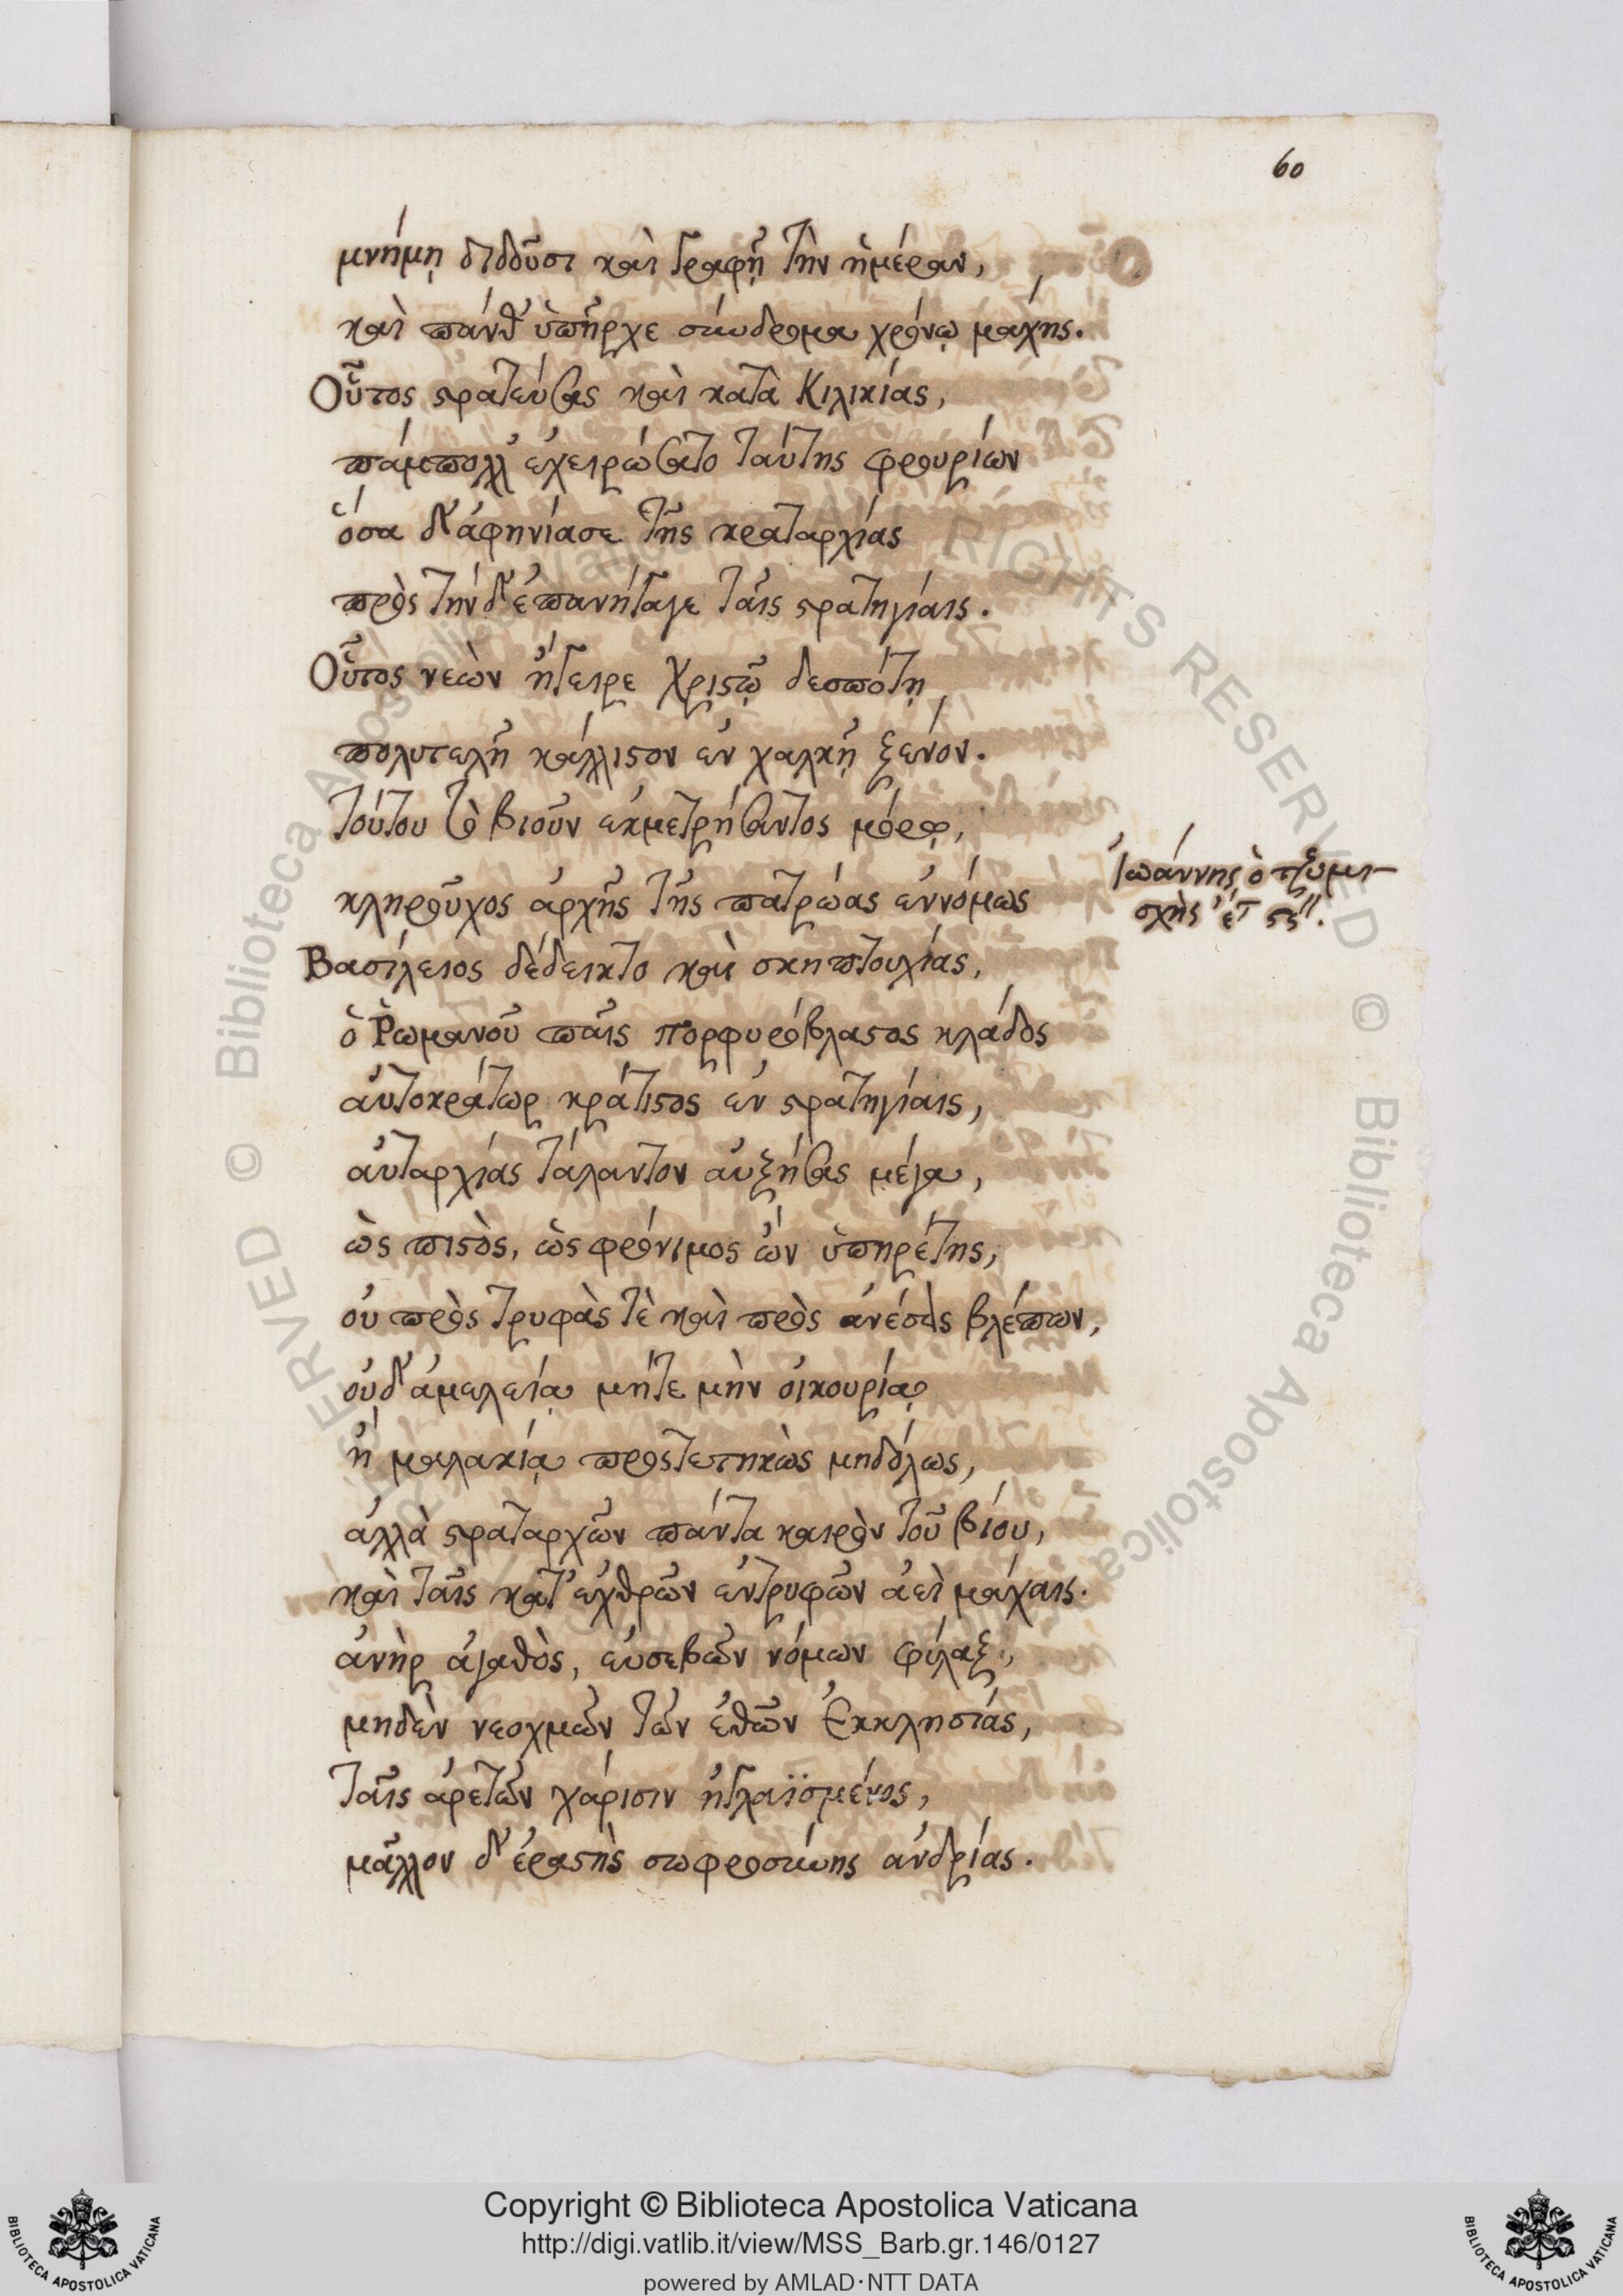 60
μνήμῃ διδοῦσι καὶ γραφῇ τὴν ἡμέραν,
καὶ πάνθ' ὑπῆρχε σύνδρομα χρόνῳ μάχης.
Οὗτος στρατεύσας καὶ κατὰ Κιλικίας,
πάμπολλ' ἐχειρώσατο ταύτης φρουρίων
ὅσα δ' ἀφηνίασε τῆς κραταρχίας
πρὸς τήνδ' ἐπανήγαγε ταῖς στρατηγίαις.
Οὗτος νεὼν ἤγειρε Χριστῷ δεσπότῃ
πολυτελῆ κάλλιστον ἐν χαλκῇ ξένον.
τούτου τὸ βιοῦν ἐκμετρήσαντος μόρῳ,
κληροῦχος ἀρχῆς τῆς πατρώας ἐννόμως
Ἰωάννης ὁ τζυμι-
σχὴς ἔτ ςς''.
Βασίλειος δέδεικτο καὶ σκηπτουχίας,
ὁ Ῥωμανοῦ παῖς πορφυρόβλαστος κλάδος
αὐτοκράτωρ κράτιστος ἐν στρατηγίαις,
αὐταρχίας τάλαντον αὐξήσας μέγα,
ὡς πιστὸς, ὡς φρόνιμος ὢν ὑπηρέτης,
οὐ πρὸς τρυφὰς τὲ καὶ πρὸς ἀνέσεις βλέπων,
οὐδ' ἀμελείᾳ μήτε μὴν οἰκουρίᾳ
ἢ μαλακίᾳ προστετηκὼς μηδόλως,
ἀλλὰ στραταρχῶν πάντα καιρὸν τοῦ βίου,
καὶ ταῖς κατ' ἐχθρῶν ἐντρυφῶν ἀεὶ μάχαις.
ἀνὴρ ἀγαθὸς, εὐσεβῶν νόμων φύλαξ,
μηδὲν νεοχμῶν τῶν ἐθῶν Ἐκκλησίας,
ταῖς ἀρετῶν χάρισιν ἠγλαϊσμένος,
μᾶλλον δ' ἐραστὴς σωφροσύνης ἀνδρίας.
Copyright © Biblioteca Apostolica Vaticana
http://digi.vatlib.it/view/MSS_Barb.gr.146/0127
powered by AMLAD·NTT DATA